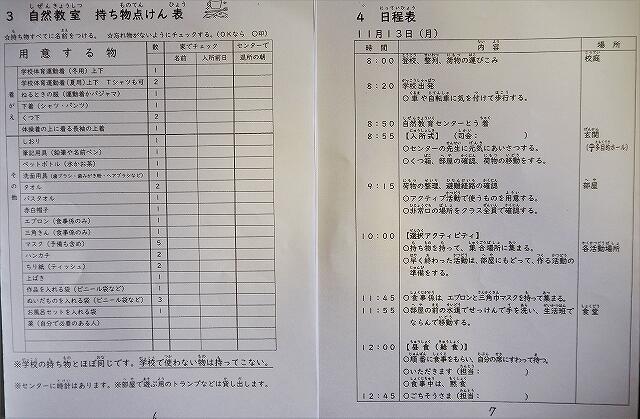 3 自然教室 持ち物点けん表
☆持ち物すべてに名前をつける。 ☆忘れ物がないようにチェックする。(OKなら ○印)
用意する物 数 家でチェック センターで
名前 入所前日 退所の朝
着がえ
学校体育運動着(冬用)上下 1
学校体育運動着(夏用)上下 Tシャツも可 2
ねるときの服(運動着かパジャマ) 1
下着(シャツ・パンツ) 1
くつ下 2
体操着の上に着る長袖の上着 1
その他
しおり 1
筆記用具(鉛筆や名前ペン) 1
ペットボトル(水かお茶) 1
洗面用具(歯ブラシ・歯みがき粉・ヘアブラシなど) 1
タオル 2
バスタオル 1
赤白帽子 1
エプロン(食事係のみ) 1
三角きん(食事係のみ) 1
マスク(予備も含め) 5
ハンカチ 2
ちり紙(ティッシュ) 2
上ばき 1
作品を入れる袋(ビニール袋など) 1
ぬいだものを入れる袋(ビニール袋など) 3
お風呂セットを入れる袋 1
薬(自分で必要のある人)
※学校の持ち物とほぼ同じです。学校で使わない物は持ってこない。
※センターに時計はあります。※部屋で遊ぶ用のトランプなどは貸し出します。
6
4 日程表
11月13日(月)
時間 内容 場所
8:00 登校、整列、荷物の運びこみ 校庭
8:20 学校出発
○車や自転車に気を付けて歩行する。
8:50 自然教育センターとう着
8:55 【入所式】 (司会: ) 玄関
○センターの先生に元気にあいさつする。
○くつ箱、部屋の確認、荷物の移動をする。
9:15 荷物の整理、避難経路の確認 部屋
○アクティブ活動で使うものを用意する。
○非常口の場所をクラス全員で確認する。
10:00 【選択アクティビティ】
○持ち物を持って、集合場所に集まる。 各活動場所
○早く終わった活動は、部屋にもどって、作る活動の
準備をする。
11:45 ○食事係は、エプロンと三角巾マスクを持って集まる。
11:55 ○部屋の前の水道でせっけんで手を洗い、生活班で 食堂
ならんで移動する。
12:00 【昼食(給食)】
○順番に食事をもらい、自分の席にすわって待つ。
○いただきます(担当: )
○食事中は、黙食
12:45 ○ごちそうさま(担当: )
7